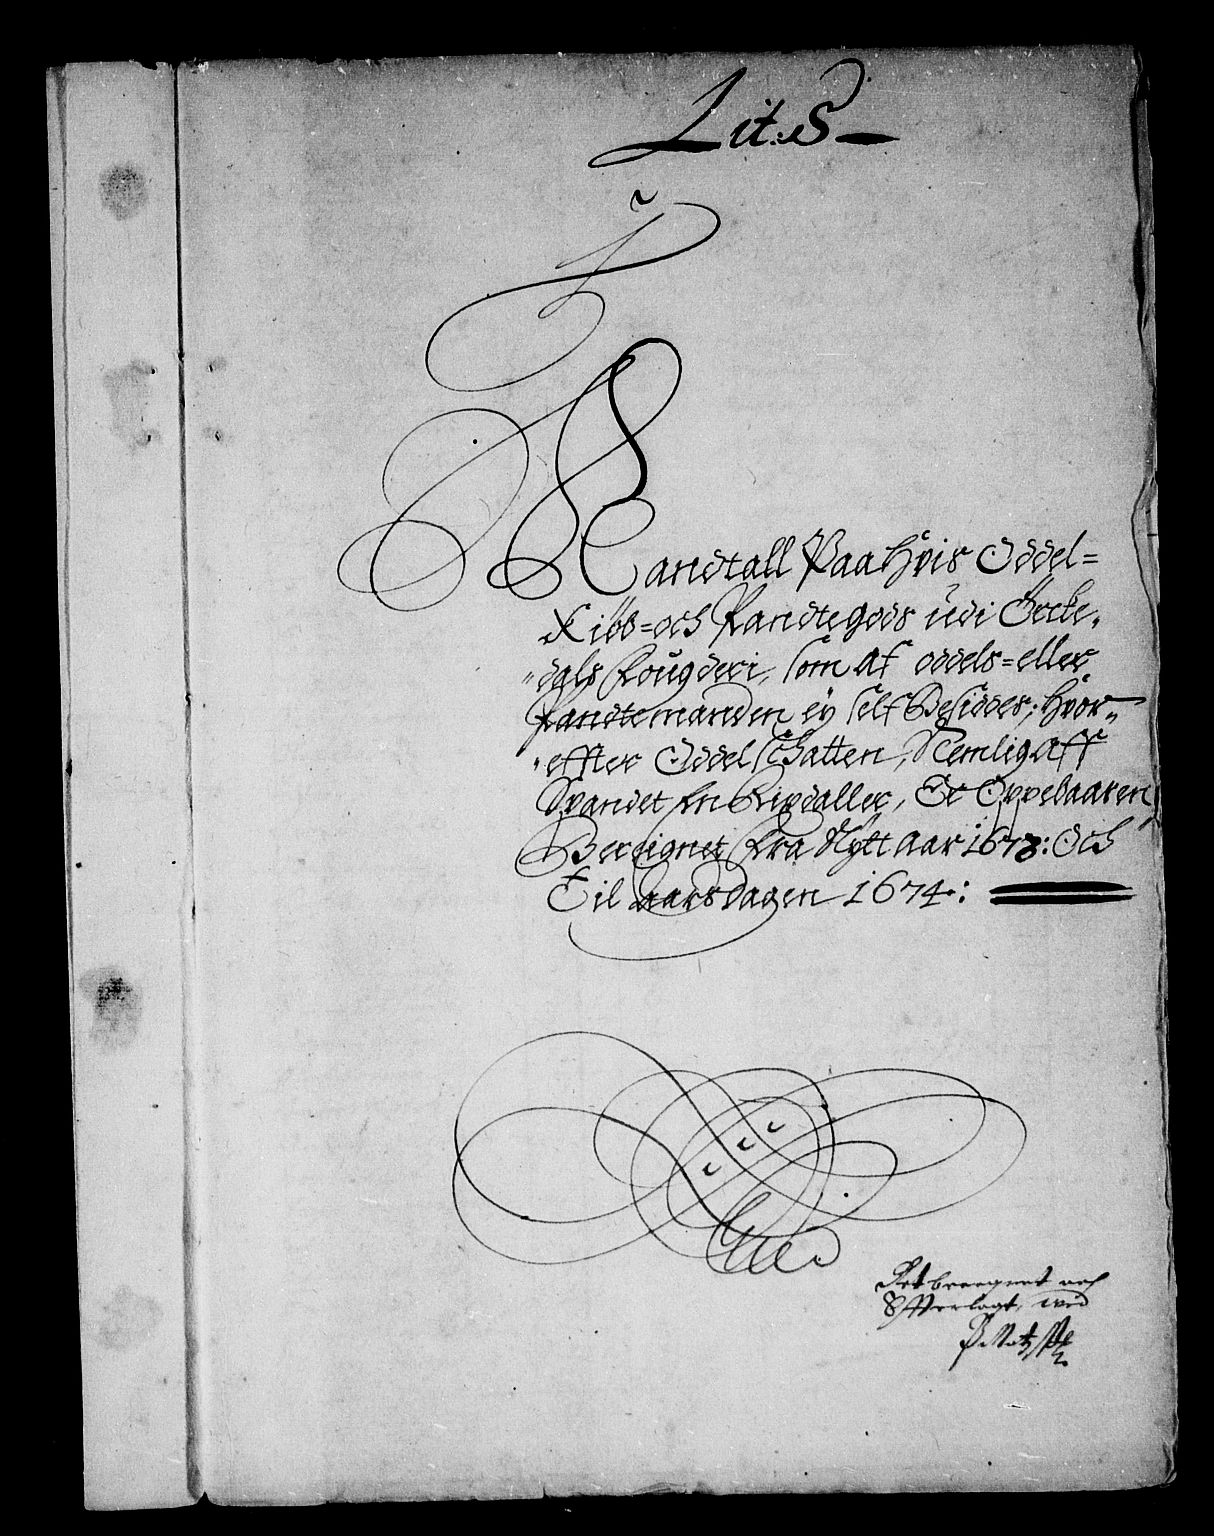 Lit: S
Mandtall Paa Hvis Oddel=
Kiöb=och Pandtegods udi Ørcke„
„dals Fougderi, som af oddels=eller
Pandtemanden ey self Besiddes, Hvor„
„effter Oddel Schatten, Nemlig aff
Spandet En Rixdaller, Er Oppebaaren
Beregnet Fra Nytt aar 1673: Och
Til Aarsdagen 1674:
offuerlagt, wed